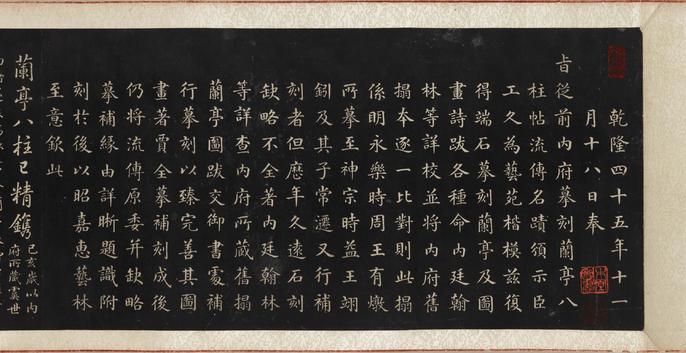 乾隆四十五年十一
月十八日奉
旨從前內府摹刻蘭亭八
柱帖流傳名蹟頒示臣
工久為藝苑楷模茲復
得端石摹刻蘭亭及圖
畫詩跋各種命內廷翰
林等詳校並將內府舊
搨本逐一比對則此搨
係明永樂時周王有燉
所摹至神宗時益王翊
鈏及其子常遷又行補
刻者但厯年久遠石刻
缺略不全著內廷翰林
等詳查內府所藏舊搨
蘭亭圖跋交御書處補
行摹刻以臻完善其圖
畫著賈全摹補刻成後
仍將流傳原委并缺略
摹補緣由詳晰題識附
刻於後以昭嘉惠藝林
至意欽此
蘭亭八柱已精鐫
己亥歲以內
府所藏虞世